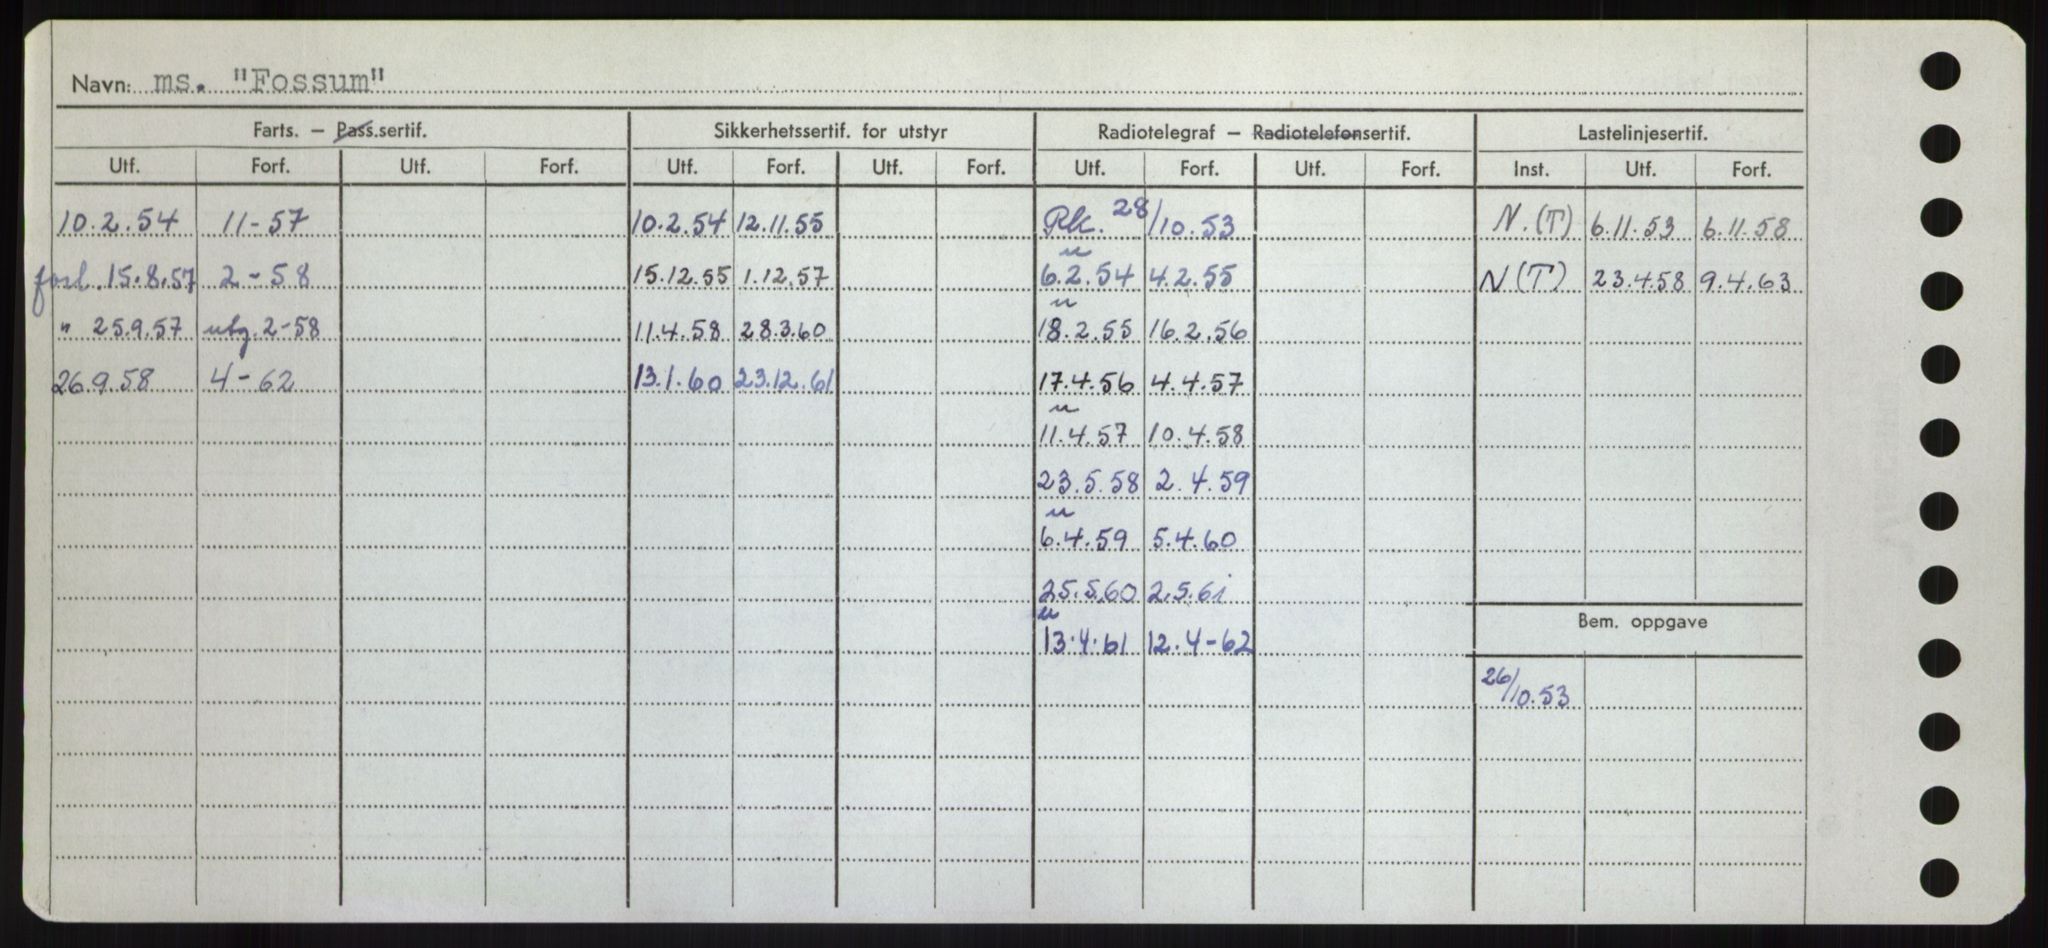 Navn: ms. "Fossum"
Farts. – Pass.sertif. Sikkerhetssertif. for utstyr Radiotelegraf – Radiotelefonsertif. Lastelinjesertif.
Utf. Forf. Utf. Forf. Utf. Forf. Utf. Forf. Utf. Forf. Utf. Forf. Inst. Utf. Forf.
10.2.54 11-57 10.2.54 12.11.55 28/10.53 N.(T) 6.11.53 6.11.58
forl. 15.8.57 2-58 15.12.55 1.12.57 6.2.54 4.2.55 N(T) 23.4.58 9.4.63
" 25.9.57 utg. 2-58 11.4.58 28.3.60 18.2.55 16.2.56
26.9.58 4-62 13.1.60 23.12.61 17.4.56 4.4.57
11.4.57 10.4.58
23.5.58 2.4.59
6.4.59 5.4.60
25.5.60 2.5.61
Bem. oppgave
13.4.61 12.4-62
26/10.53